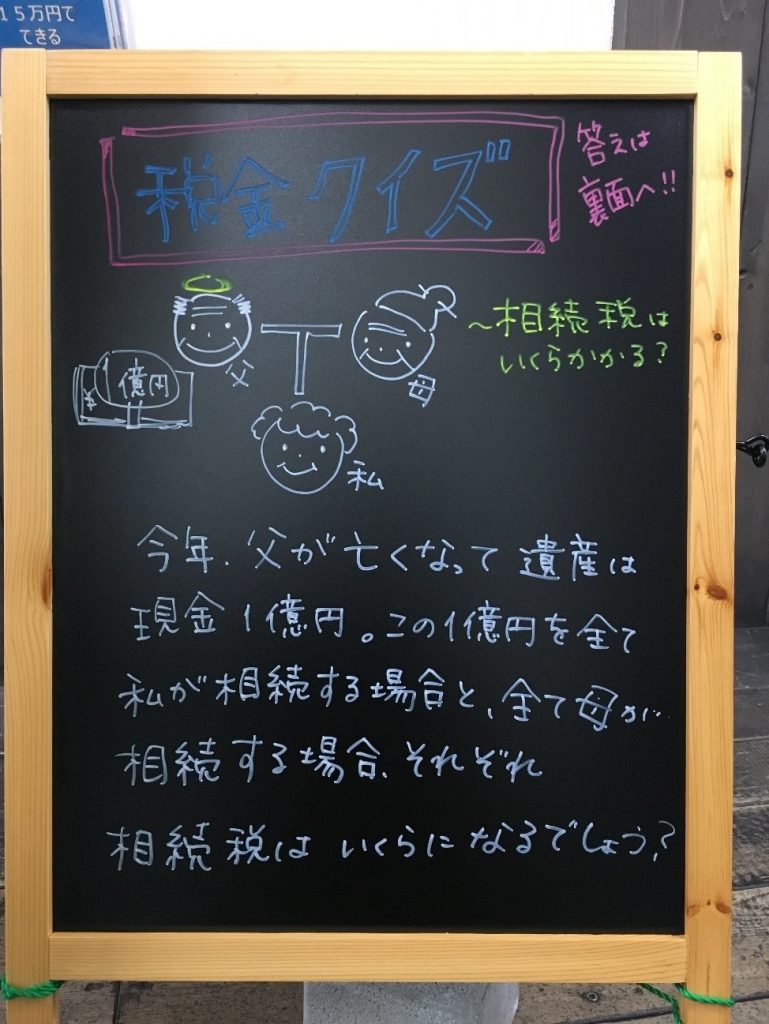 15万円で
できる
税金クイズ
答えは
裏面へ!!
父
母
私
¥
1億円
~相続税は
いくらかかる?
今年、父が亡くなって遺産は
現金1億円。この1億円を全て
私が相続する場合と、全て母が
相続する場合、それぞれ
相続税はいくらになるでしょう?